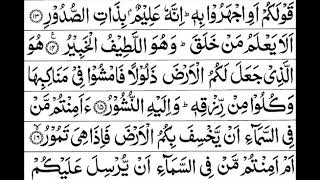 قَوْلَكُمْ اَوِ اجْهَرُوْا بِهٖ ؕ اِنَّهٗ عَلِيْمٌۢ بِذَاتِ الصُّدُوْرِ ﴿۱۳﴾
اَلَا يَعْلَمُ مَنْ خَلَقَ ؕ وَهُوَ اللَّطِيْفُ الْخَبِيْرُ ﴿۱۴﴾ هُوَ
الَّذِىْ جَعَلَ لَكُمُ الْاَرْضَ ذَلُوْلًا فَامْشُوْا فِىْ مَنَاكِبِهَا
وَكُلُوْا مِنْ رِّزْقِهٖ ؕ وَاِلَيْهِ النُّشُوْرُ ﴿۱۵﴾ ءَاَمِنْتُمْ مَّنْ
فِى السَّمَآءِ اَنْ يَّخْسِفَ بِكُمُ الْاَرْضَ فَاِذَا هِىَ تَمُوْرُ ﴿۱۶﴾
اَمْ اَمِنْتُمْ مَّنْ فِى السَّمَآءِ اَنْ يُّرْسِلَ عَلَيْكُمْ